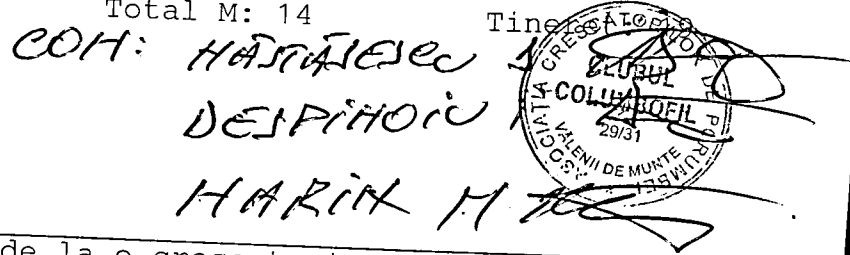 Total M: 14
COM: NĂSTĂSESCU
DESPINOIU
MARIN M
ASOCIAȚIA CRESCĂTORILOR DE PORUMBEI
CLUBUL
COLUMBOFIL
29/31
VĂLENII DE MUNTE
de la o